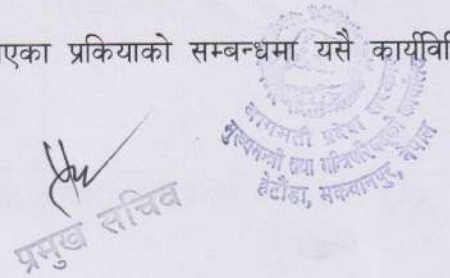 एका प्रकियाको सम्बन्धमा यसै कार्यवि
बागमती प्रदेश सरकार
मुख्यमन्त्री तथा मन्त्रिपरिषद्को कार्यालय
हेटौंडा, मकवानपुर, नेपाल
प्रमुख सचिव